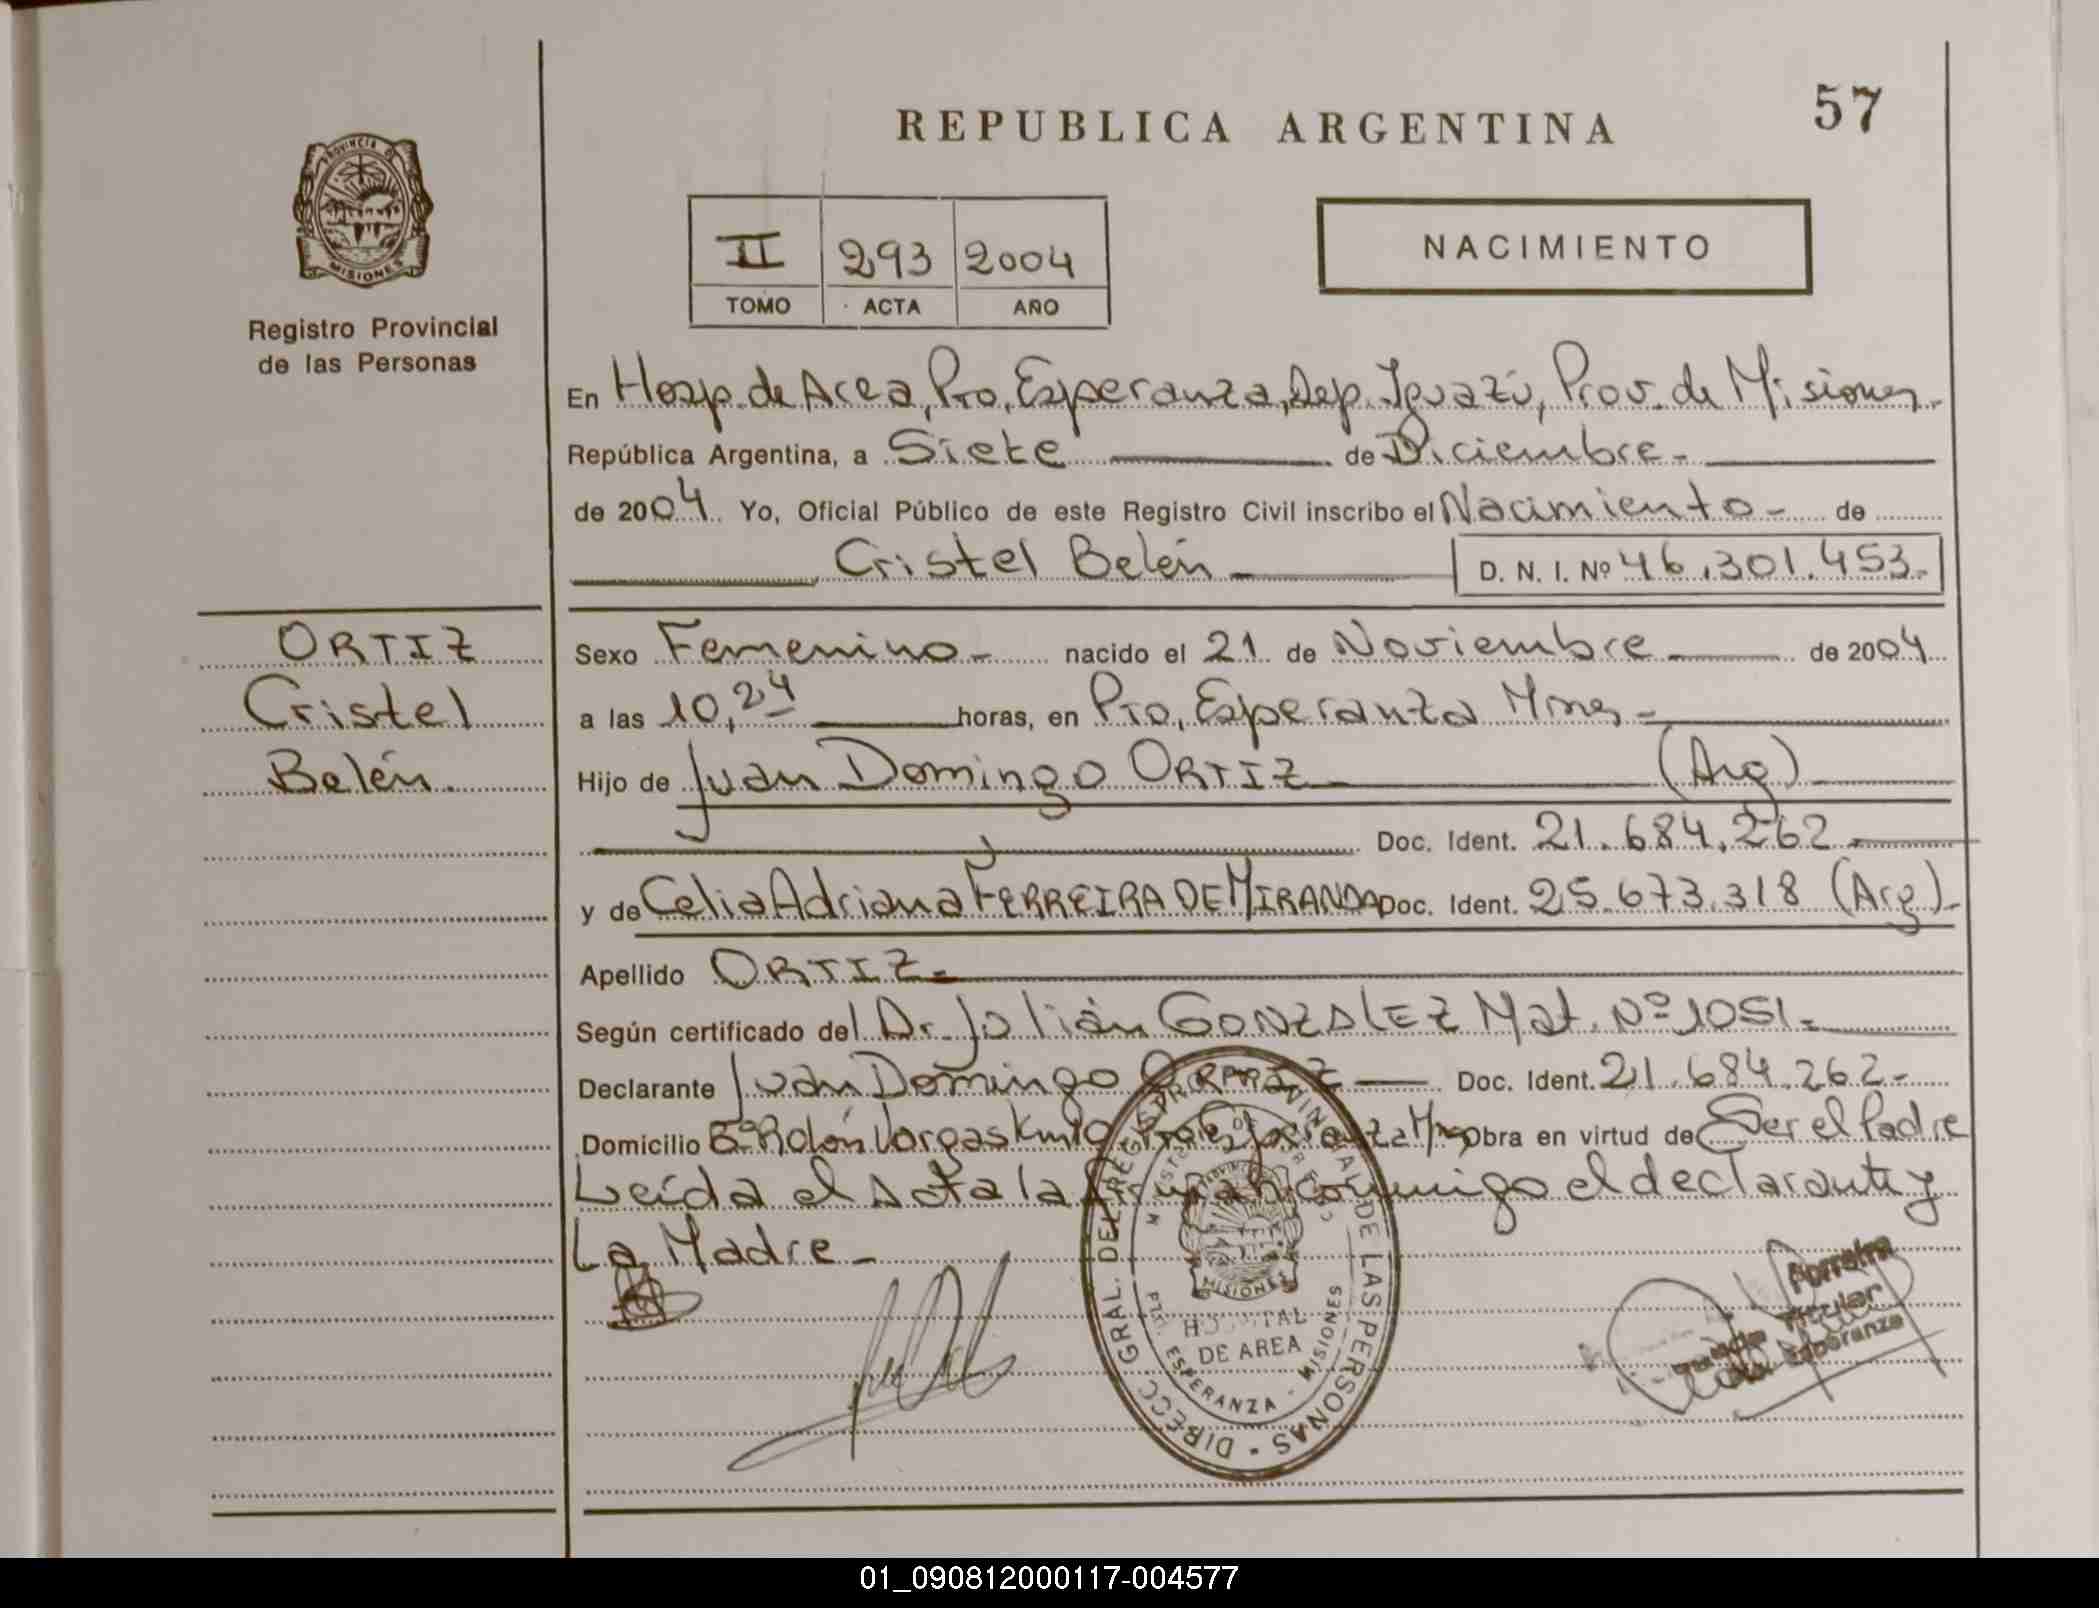 57
REPUBLICA ARGENTINA
PROVINCIA DE
MISIONES
Registro Provincial
de las Personas
II 293 2004
TOMO ACTA AÑO
NACIMIENTO
En Hosp. de Area, Pto. Esperanza, Dep. Iguazú, Prov. de Misiones.
República Argentina, a Siete de Diciembre.-
de 2004. Yo, Oficial Público de este Registro Civil inscribo el Nacimiento- de
Cristel Belén D. N. I. Nº 46.301.453.-
ORTIZ
Cristel
Belén.
Sexo Femenino- nacido el 21 de Noviembre de 2004
a las 10,24 horas, en Pto. Esperanza Mnes-
Hijo de Juan Domingo ORTIZ (Arg)
Doc. Ident. 21.684.262.-
y de Celia Adriana FERREIRA DE MIRANDA Doc. Ident. 25.673.318 (Arg).-
Apellido ORTIZ.-
Según certificado del Dr. Julián GONZALEZ Mat. Nº 1051.-
Declarante Juan Domingo ORTIZ Doc. Ident. 21.684.262.-
Domicilio Bº Rolón Vargas Km Pto. Esperanza Mnes Obra en virtud de Ser el Padre
Leída el Acta la firman conmigo el declarante y
La Madre-
DIRECC. GRAL. DEL REGISTRO PROVINCIAL DE LAS PERSONAS
MISIONES
HOSPITAL
DE AREA
ESPERANZA - MISIONES
Ferreira
Titular
Esperanza
01_090812000117-004577